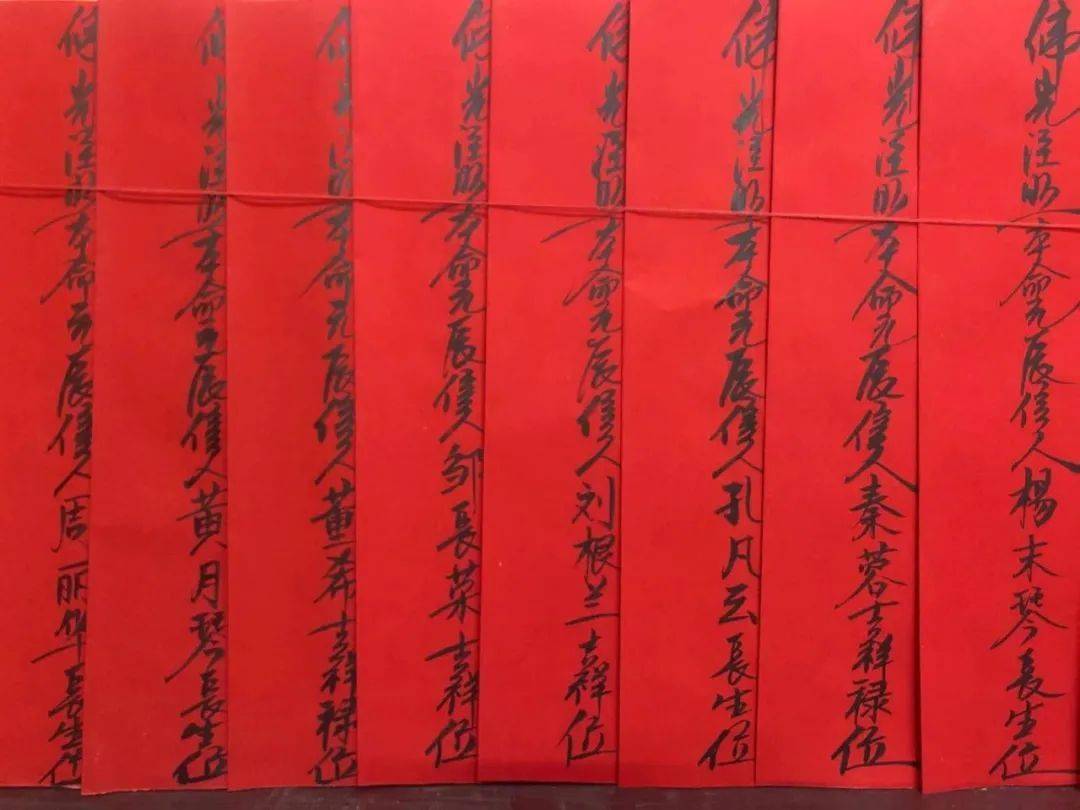 佛光注照本命元辰信人楊末琴長生位
佛光注照本命元辰信人秦蓉吉祥禄位
佛光注照本命元辰信人孔凡云長生位
佛光注照本命元辰信人刘根兰吉祥位
佛光注照本命元辰信人邹長荣吉祥位
佛光注照本命元辰信人董希吉祥禄位
佛光注照本命元辰信人黄月琴長生位
佛光注照本命元辰信人周丽华長生位